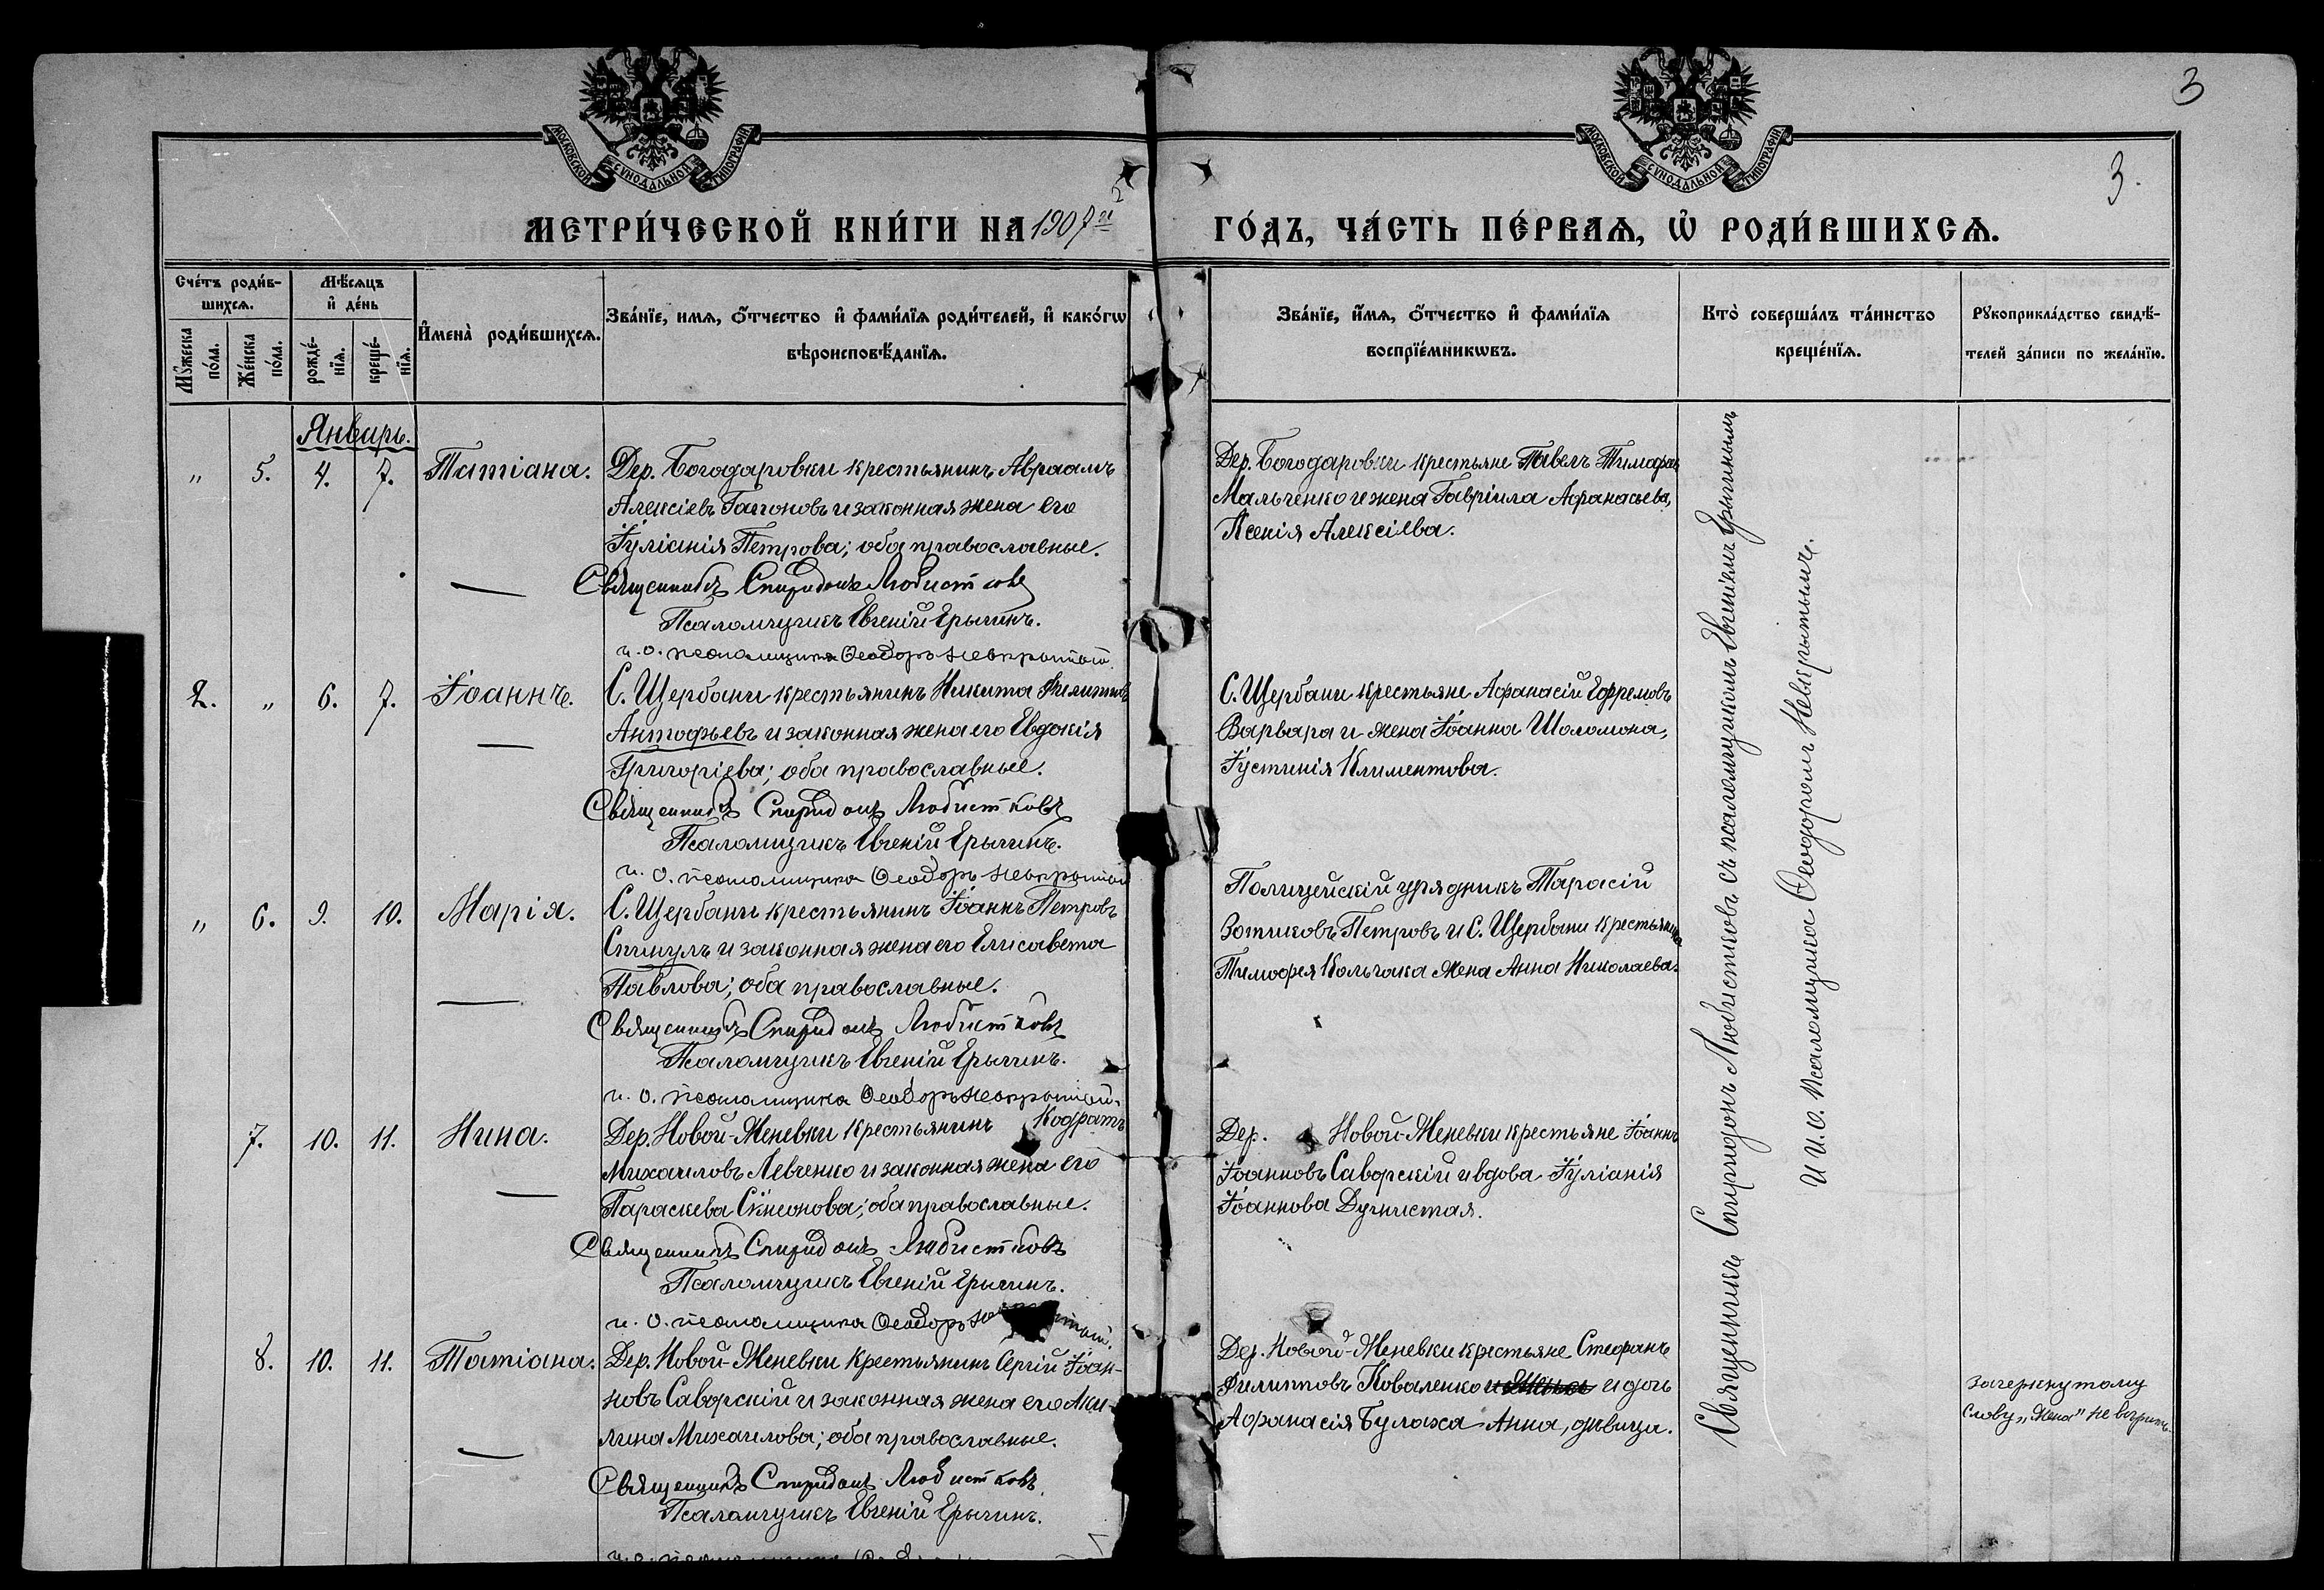 3
3.
МОСКОВСКОЙ СѴНОДАЛЬНОЙ ТИПОГРАФІИ
МОСКОВСКОЙ СѴНОДАЛЬНОЙ ТИПОГРАФІИ
МЕТРИ́ЧЕСКОЙ КНИ́ГИ НА 1907й ГО́ДЪ, ЧА́СТЬ ПЕ́РВАѦ, Ѡ҆ РОДИ́ВШИХСѦ.
2
Сче́тъ роди́в-
шихсѧ.
Мꙋ́жеска по́ла.
Же́нска по́ла.
Мѣ́сѧцъ
и҆ де́нь
рожде́-
нїѧ.
креще́-
нїѧ.
И҆мена̀ роди́вшихсѧ.
Зва́нїе, имѧ, ѻ҆́тчество и҆ фами́лїѧ роди́телей, и҆ како́гѡ
вѣроисповѣ́данїѧ.
Зва́нїе, и҆́мѧ, ѻ҆́тчество и҆ фами́лїѧ
воспрїе́мникѡвъ.
Кто̀ соверша́лъ та́инство
креще́нїѧ.
Рꙋкоприкла́дство свидѣ́-
телей за́писи по жела́нїю.
Январь.
" 5. 4. 7. Татіана. Дер. Богодаровки крестьянинъ Авраамъ
Алексіевъ Гапоновъ и законная жена его
Іуліанія Петрова; оба православные.
Священникъ Спиридонъ Любистковъ
Псаломщикъ Евгеній Ерыгинъ.
и. о. псаломщика Ѳеодоръ Невкрытый.
Дер. Богодаровки крестьяне Павелъ Тимофеевъ
Мальченко и жена Гавріила Афанасьева,
Ксенія Алексіева.
2. " 6. 7. Іоаннъ. С. Щербани крестьянинъ Никита Филипповъ
Антофьевъ и законная жена его Евдокія
Григоріева; оба православные.
Священникъ Спиридонъ Любистковъ
Псаломщикъ Евгеній Ерыгинъ.
и. о. псаломщика Ѳеодоръ Невкрытый
С. Щербани крестьяне Афанасій Ефремовъ
Варвара и жена Іоанна Шоломона,
Іустинія Климентова.
" 6. 9. 10. Марія. С. Щербани крестьянинъ Іоаннъ Петровъ
Спинулъ и законная жена его Елисавета
Павлова; оба православные.
Священникъ Спиридонъ Любистковъ
Псаломщикъ Евгеній Ерыгинъ.
и. о. псаломщика Ѳеодоръ Невкрытый.
Полицейскій урядникъ Тарасій
Зотиковъ Петровъ и С. Щербани крестьянина
Тимофея Колчака жена Анна Николаева.
7. 10. 11. Нина. Дер. Новой-Меневки крестьянинъ Кодратъ
Михаиловъ Левченко и законная жена его
Параскева Сѵмеонова; оба православные.
Священникъ Спиридонъ Любистковъ
Псаломщикъ Евгеній Ерыгинъ.
и. о. псаломщика Ѳеодоръ
Дер. Новой-Меневки крестьяне Іоаннъ
Іоанновъ Саворскій и вдова Іуліанія
Іоаннова Дучнистая.
8. 10. 11. Татіана. Дер. Новой-Меневки крестьянинъ Сергій Іоан-
новъ Саворскій и законная жена его Аки-
лина Михаилова; оба православные.
Священникъ Спиридонъ Любистковъ
Псаломщикъ Евгеній Ерыгинъ.
Дер. Новой-Меневки крестьяне Стефанъ
Филипповъ Коваленко и жена и дочь
Афанасія Булаха Анна, дѣвица.
Священникъ Спиридонъ Любистковъ съ псаломщикомъ Евгеніемъ Ерыгинымъ
и И. о. псаломщика Ѳеодоромъ Невкрытымъ.
Зачеркнутому
слову „жена" не вѣрить.